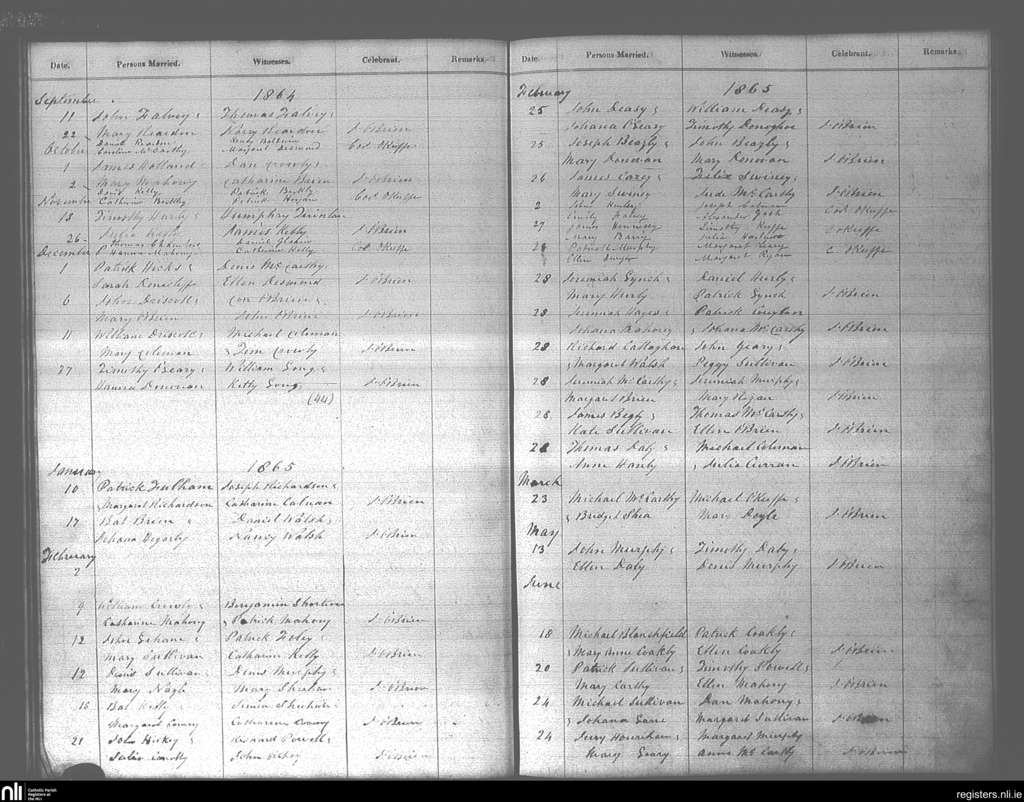 Date. Persons Married. Witnesses. Celebrant. Remarks.
1864
September
11 John Falvey Thomas Falvey
Mary Reardon Mary Reardon D O'Brien
22 David Reardon
October Caroline McCarthy Margaret Desmond Cor. O'Keeffe
1 James Holland Dan Crowly
Mary Mahony Catharine Brien D O'Brien
2 David Kelly Patrick Buckly
November Catharine Buckly Patrick Cor. O'Keeffe
13 Timothy Humphry
Julia D O'Brien
26 Thomas Daniel
December Hanna Mahony Catherine Kelly Cor O'Keeffe
1 Patrick Hicks Denis McCarthy
Sarah Ellen Desmond D O'Brien
6 John Driscoll Con O'Brien
Mary O'Brien John O'Brien D O'Brien
11 William Driscoll Michael Coleman
Mary Coleman Tim Crowly D O'Brien
27 Timothy O'Leary William Long
Hanna Donovan Kitty Long D O'Brien
(44)
1865
January
10 Patrick Fulham Joseph Richardson
Margaret Richardson Catharine D O'Brien
17 Bat Brien Daniel Walsh
Johana Nancy Walsh D O'Brien
February
2
9 William Crowly Benjamin
Catharine Mahony Patrick Mahony D O'Brien
12 John Patrick Foley
Mary Sullivan Catharine Kelly D O'Brien
12 Denis Sullivan Denis Murphy
Mary Nagle Mary Sheehan D O'Brien
16 Bat
Margaret Catharine D O'Brien
21 John Hickey Richard Powell
Julia John Hickey D O'Brien
Date. Persons Married. Witnesses. Celebrant. Remarks.
February 1865
25 John Deasy William Deasy
Johana O'Leary Timothy Donoghue D O'Brien
25 Joseph Beazly John Beazly
Mary Donovan Mary Donovan D O'Brien
26 James Casey Felix Swiney
Mary Swiney Jude McCarthy D O'Brien
2 John
Emily Alexander Cor O'Keeffe
27 James Hennessy Timothy Keeffe
Mary Barry Julia C O'Keeffe
28 Patrick Murphy Margaret
Ellen Dwyer Margaret Ryan C O'Keeffe
28 Jeremiah Lynch Daniel Hurly
Mary Hurly Patrick Lynch D O'Brien
28 Jeremiah Hayes Patrick
Johana Mahony Johana McCarthy D O'Brien
28 Richard Callaghan John Geary
Margaret Walsh Peggy Sullivan D O'Brien
28 Jeremiah McCarthy Jeremiah Murphy
Margaret Brien Mary Hogan D O'Brien
28 James Begly Thomas McCarthy
Kate Sullivan Ellen O'Brien D O'Brien
28 Thomas Daly Michael Coleman
Anne Hanly Julia Curran D O'Brien
March
23 Michael McCarthy Michael O'Keeffe
Bridget Shea Mary Doyle D O'Brien
May
13 John Murphy Timothy Daly
Ellen Daly Denis Murphy D O'Brien
June
18 Michael Blanchfield Patrick Coakly
Mary Anne Coakly Ellen Coakly D O'Brien
20 Patrick Sullivan Timothy
Mary Carthy Ellen Mahony D O'Brien
24 Michael Sullivan Dan Mahony
Johana Lane Margaret Sullivan D O'Brien
24 Jerry Hourihan Margaret Murphy
Mary Geary Anne McCarthy D O'Brien
nli Catholic Parish Registers at the NLI
registers.nli.ie